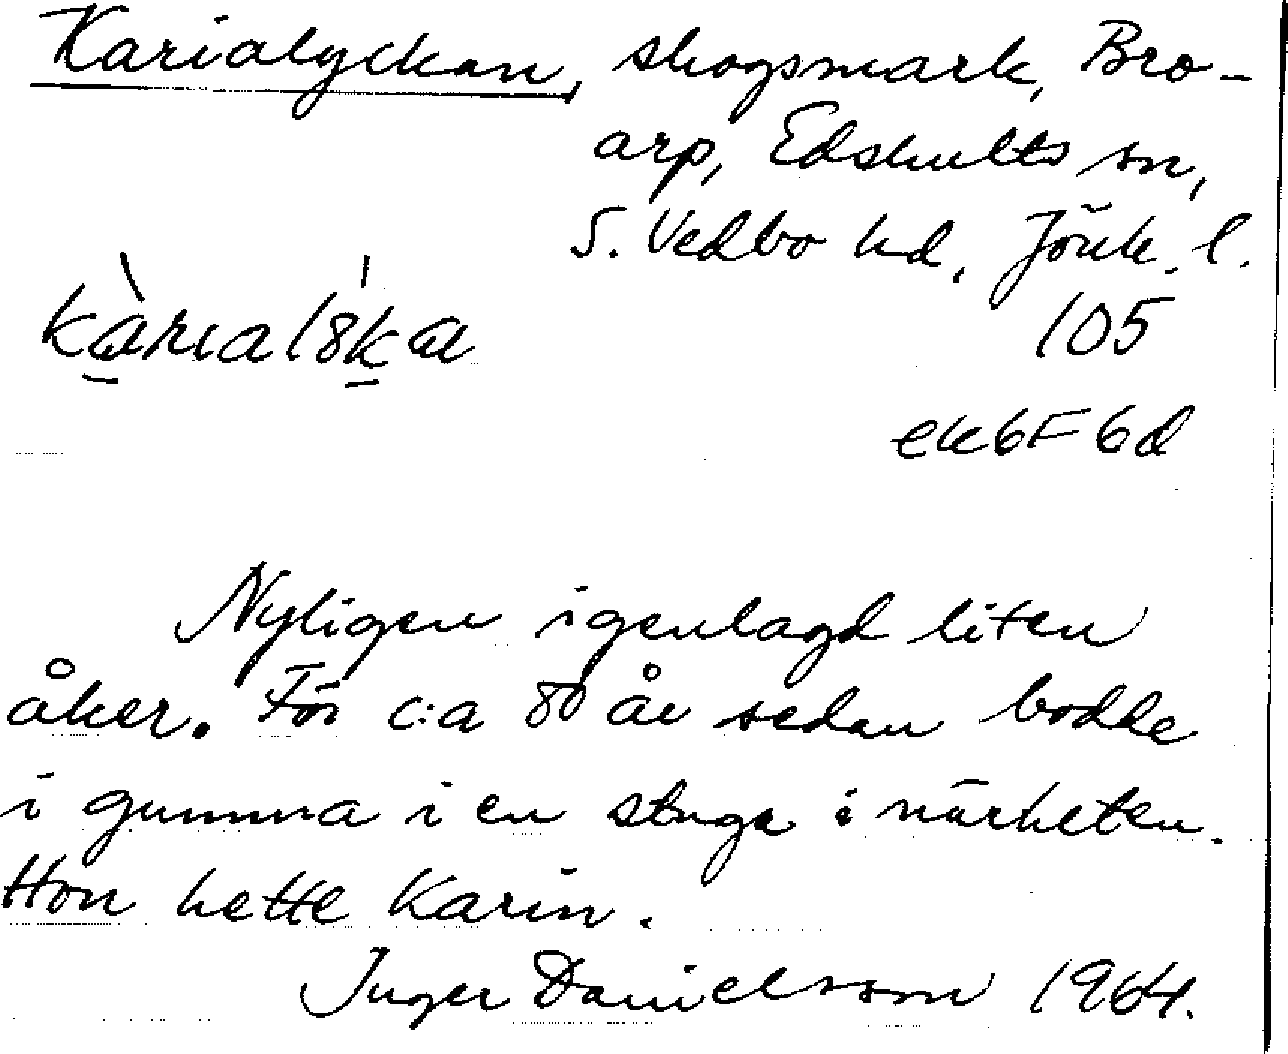 Karialyckan, skogsmark, Bro-
arp, Edshults sn,
S. Vedbo hd, Jönk. l.
105
ek6F6d
Nyligen igenlagd liten
åker. För c:a 80 år sedan bodde
i gumma i en stuga i närheten.
Hon hette Karin.
Inger Danielsson 1964.